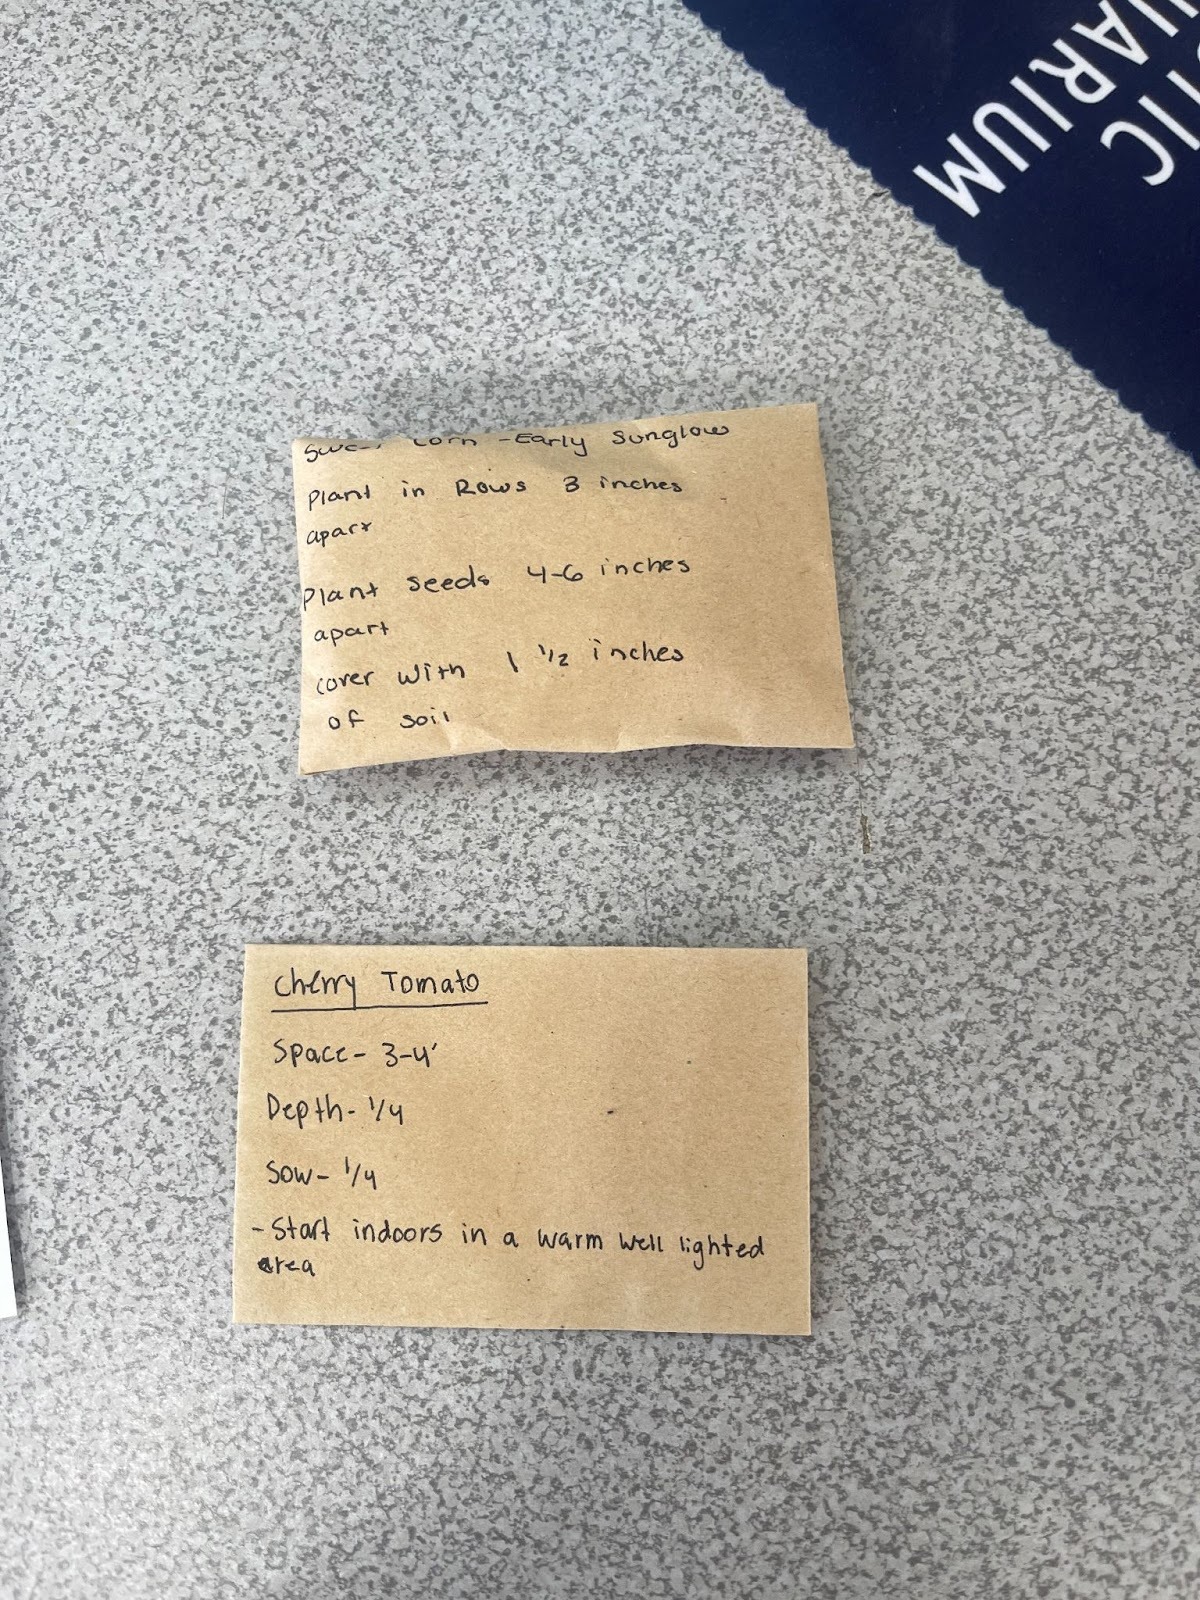 TIC
UARIUM
Sweet Corn - Early Sunglow
Plant in Rows 3 inches
apart
Plant seeds 4-6 inches
apart
cover with 1 1/2 inches
of soil
Cherry Tomato
Space- 3-4'
Depth- 1/4
Sow- 1/4
- Start indoors in a warm well lighted
area